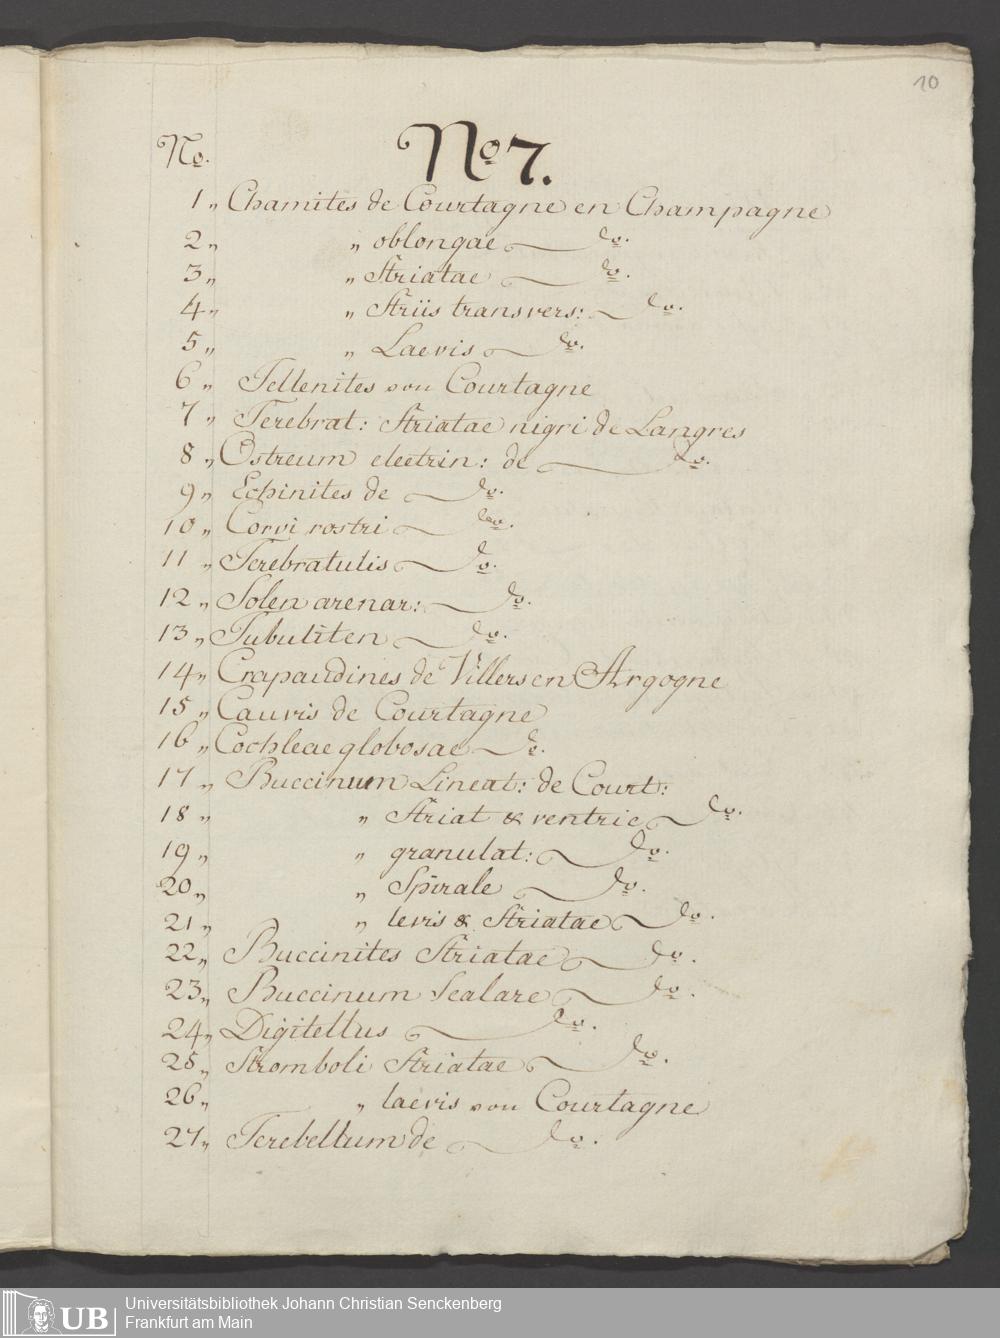 10
No.
No 7.
1„ Chamites de Courtagne en Champagne
2„ „ oblongae do.
3„ „ Striatae do.
4„ „ Striis transvers: do.
5„ „ Laevis do.
6„ Tellenites von Courtagne
7„ Terebrat: Striatae nigri de Langres
8„ Ostreum electrin: de do.
9„ Echinites de do.
10„ Corvi rostri do.
11„ Terebratulis do.
12„ Solen arenar: do.
13„ Tubuliten do.
14„ Crapaudines de Villers en Argogne
15„ Cauris de Courtagne
16„ Cochleae globosae do.
17„ Buccinum Lineat: de Court:
18„ „ Striat & ventric do.
19„ „ granulat: do.
20„ „ Spirale do.
21„ „ levis & Striatae do.
22„ Buccinites Striatae do.
23„ Buccinum Scalare do.
24„ Digitellus do.
25„ Stromboli Striatae do.
26„ „ laevis von Courtagne
27„ Terebellum de do.
UB
Universitätsbibliothek Johann Christian Senckenberg
Frankfurt am Main